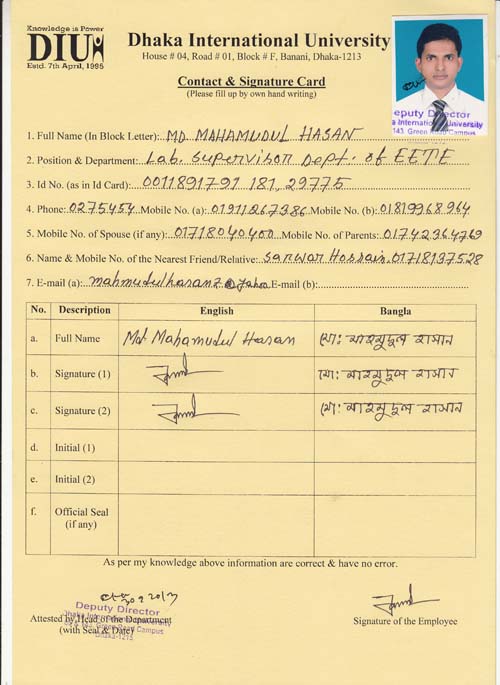 Knowledge is Power
DIU
Estd. 7th April, 1995
Dhaka International University
House # 04, Road # 01, Block # F, Banani, Dhaka-1213
Contact & Signature Card
(Please fill up by own hand writing)
Deputy Director
a International University
143, Green Road Campus
1. Full Name (In Block Letter): MD. MAHAMUDUL HASAN
2. Position & Department: Lab. Supervisor Dept. of EETE
3. Id No. (as in Id Card): 0011891791 181, 29775
4. Phone: 0275454 Mobile No. (a): 01911267386 Mobile No. (b): 01819968964
5. Mobile No. of Spouse (if any): 01718040400 Mobile No. of Parents: 01742364769
6. Name & Mobile No. of the Nearest Friend/Relative: Sarwar Hossain. 01718137528
7. E-mail (a): mahmudulhasan2@yahoo E-mail (b):
No. Description English Bangla
a. Full Name Md Mahamudul Hasan মো: মাহমুদুল হাসান
b. Signature (1) মো: মাহমুদুল হাসান
c. Signature (2) মো: মাহমুদুল হাসান
d. Initial (1)
e. Initial (2)
f. Official Seal
(if any)
As per my knowledge above information are correct & have no error.
Deputy Director
Dhaka International University
Attested by Head of the Department
Green Road Campus
(with Seal & Date)
Dhaka-1215
Signature of the Employee